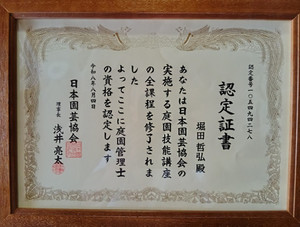 認定番号一〇五四九四二七八
認定証書
堀田 哲弘 殿
あなたは日本園芸協会の
実施する庭園技能講座
の全課程を修了されま
した
よってここに庭園管理士
の資格を認定します
令和八年八月四日
日本園芸協会
理事長 浅井亮太